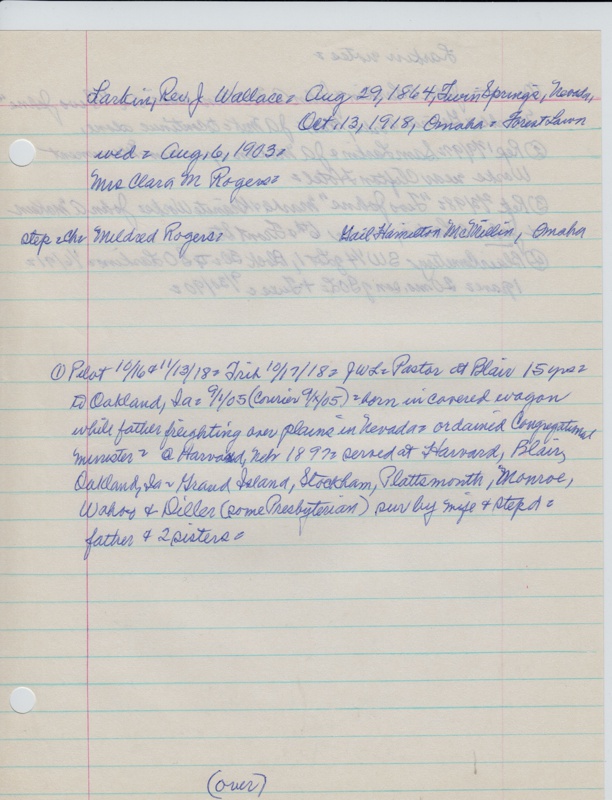 Larkin, Rev. J. Wallace = Aug 29, 1864, Twin Springs, Nevada,
Oct. 13, 1918, Omaha = Forest Lawn
wed = Aug, 6, 1903 =
Mrs Clara M Rogers =
step = chr Mildred Rogers = Gail Hamilton McMillin, Omaha
① Pilot 10/16 & 11/13/18 = Trib 10/17/18 = JWL = Pastor at Blair 15 yrs =
to Oakland, Ia = 9/1/05 (Courier 9/7/05) = born in covered wagon
while father freighting over plains "in Nevada = ordained Congregational
minister = @ Harvard, Nebr 1897 = served at Harvard, Blair,
Oakland, Ia = Grand Island, Stockham, Plattsmouth, Monroe,
Wahoo & Diller (some Presbyterian) sur by wife & step d =
father & 2 sisters =
(over)